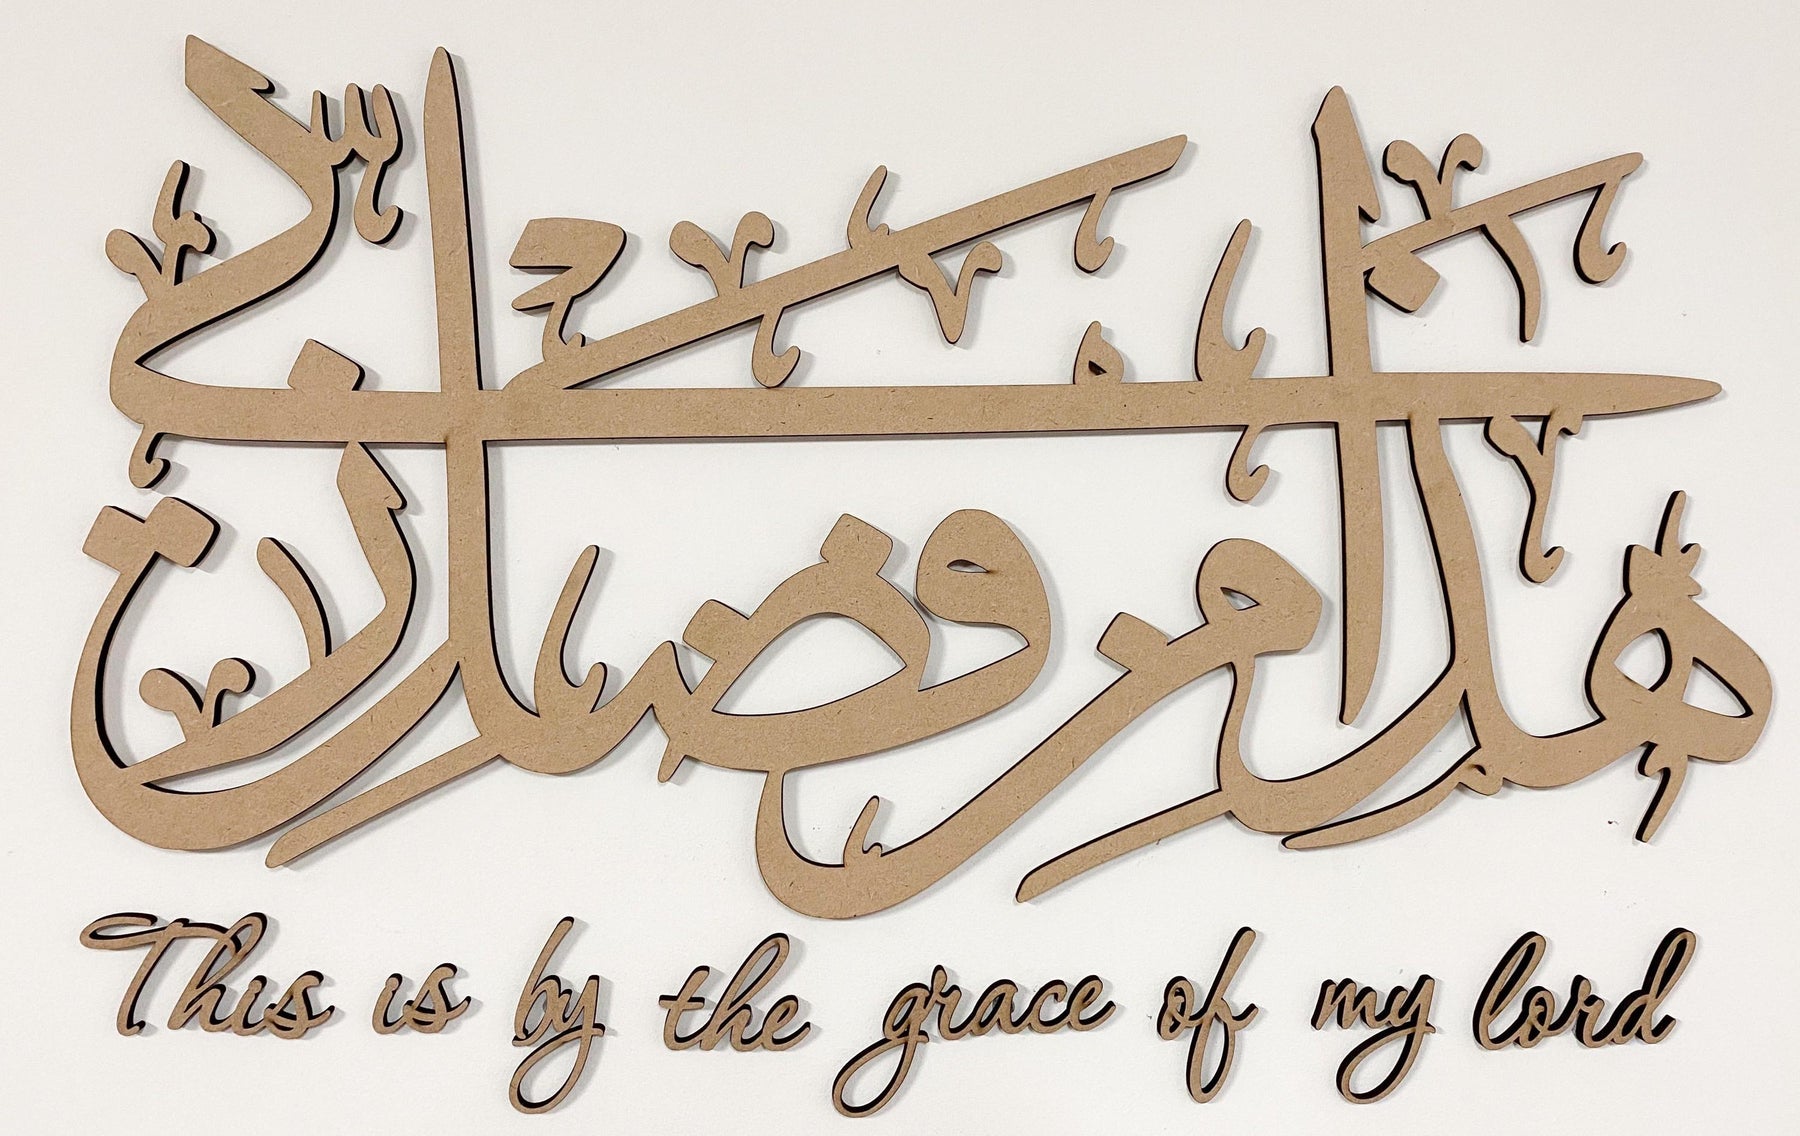 هذا من فضل ربي
This is by the grace of my lord